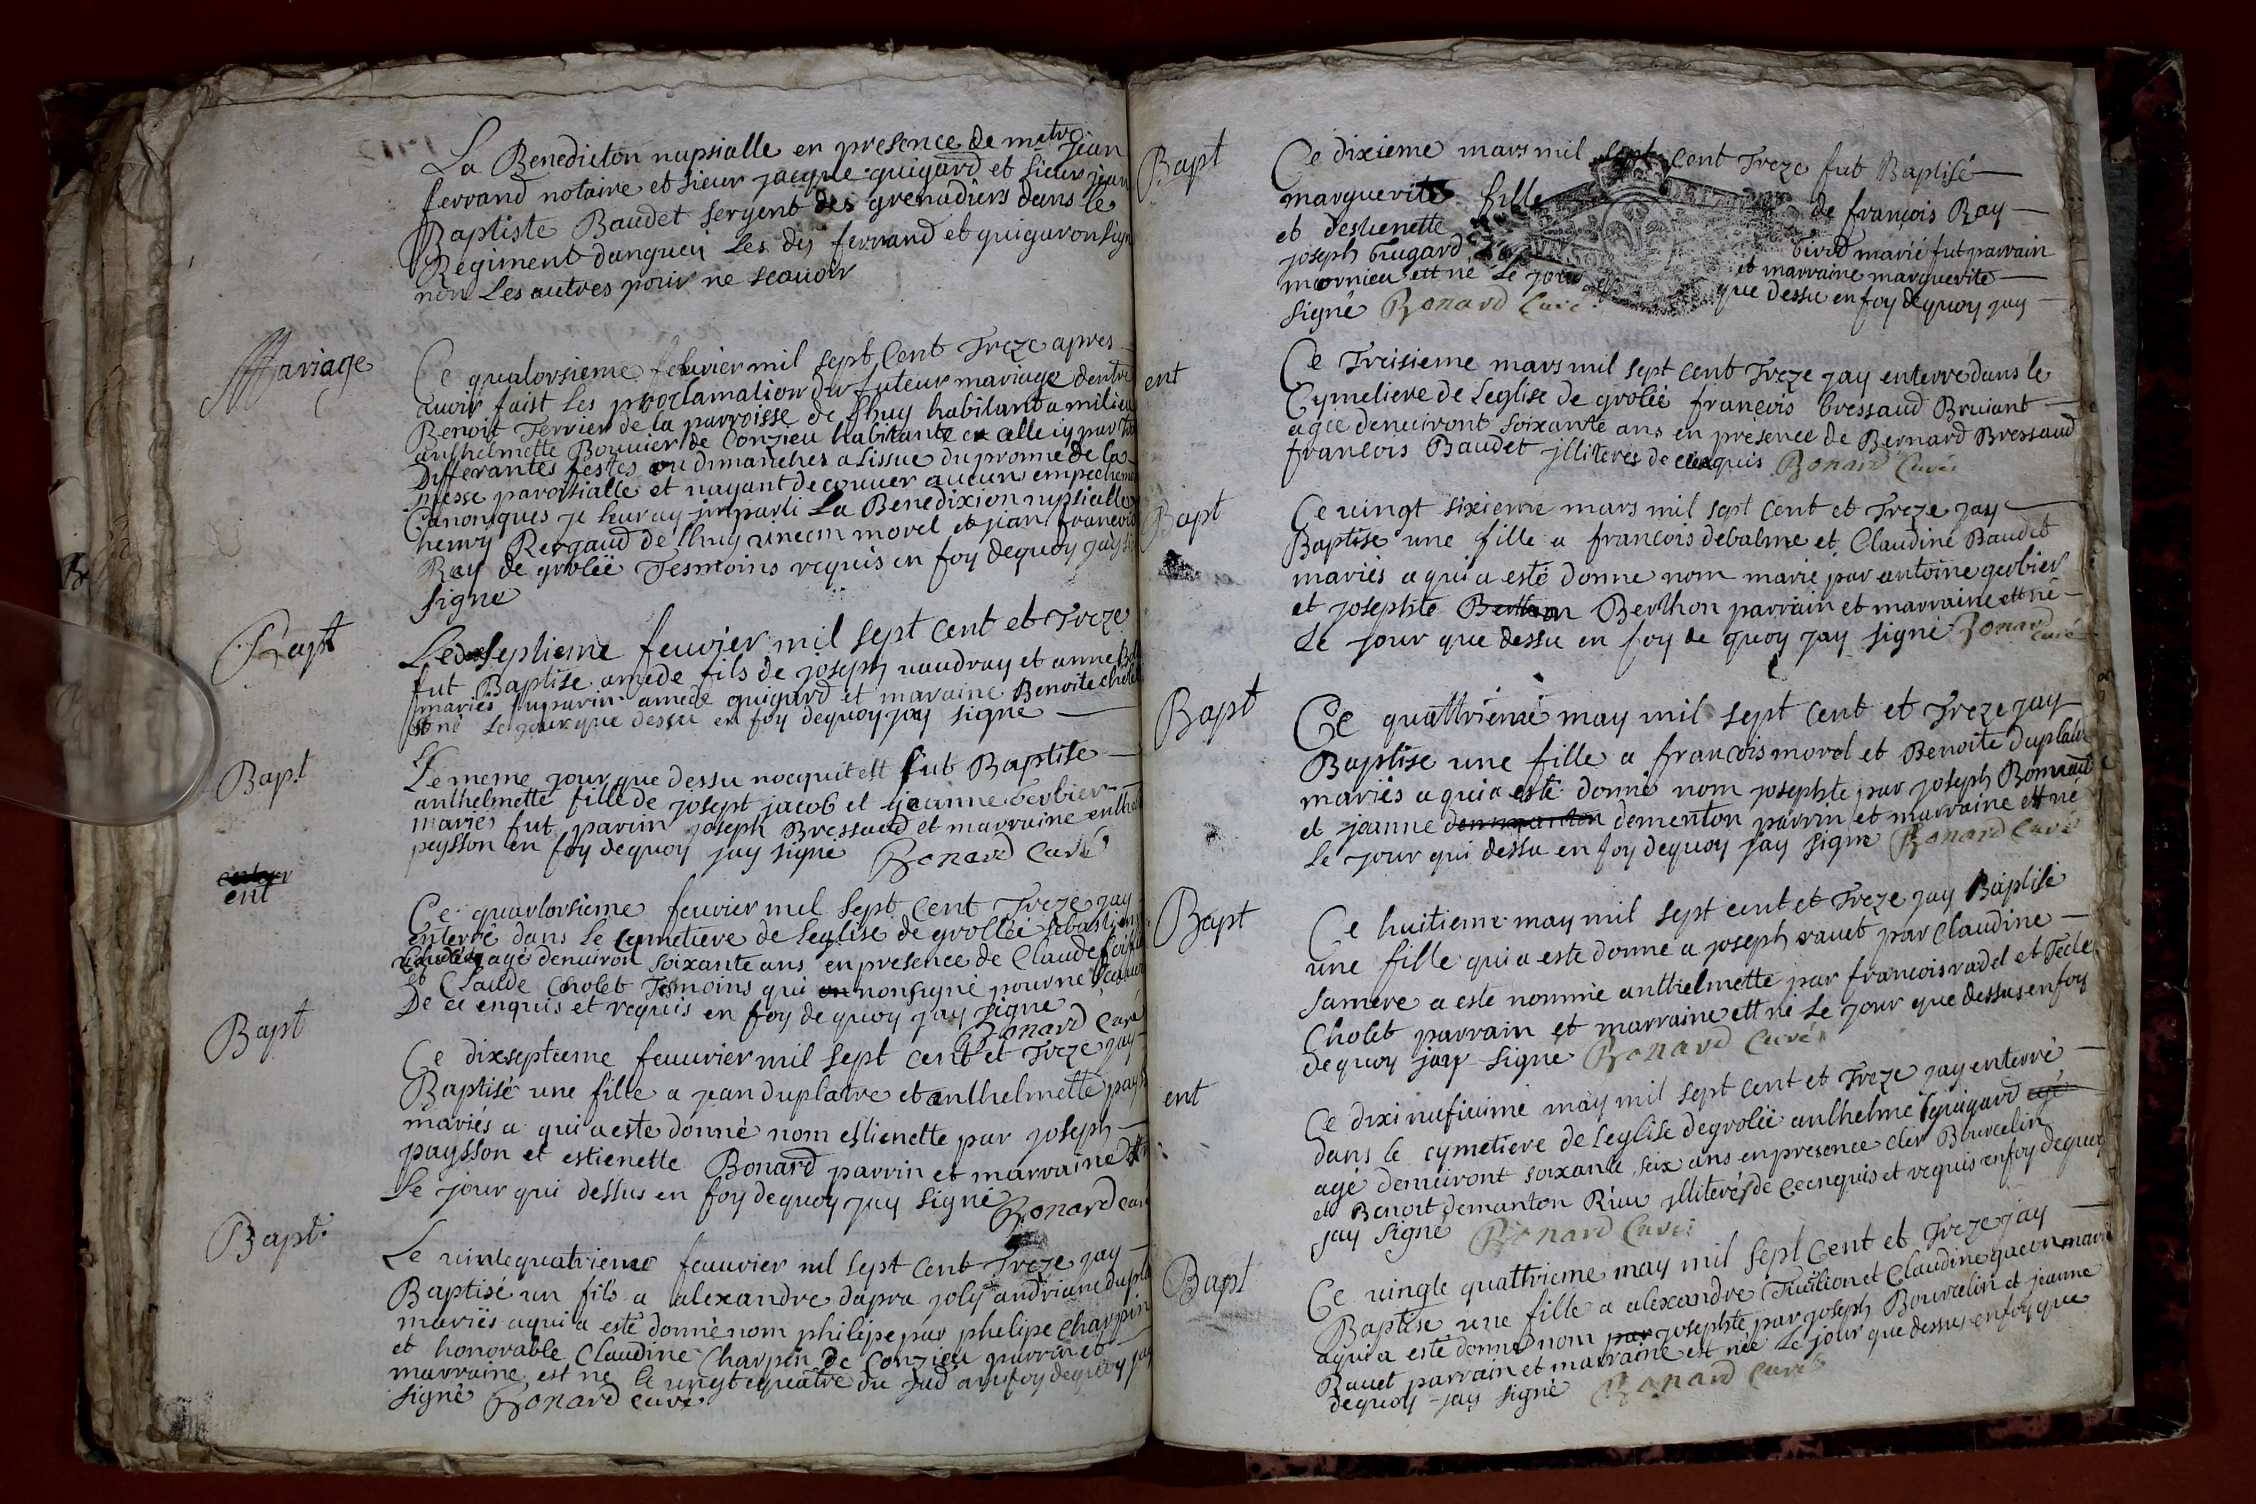 La Benediction nupsialle en presence de mtre Jean
ferrand notaire et sieur jacque guigard et sieur jean
Baptiste Baudet sergent des grenadiers dans le
Regiment danguen Les dis ferrand et guigar on signe
non Les autres pour ne scauoir
Mariage
Ce quatorsieme feburier mil sept Cent Treze apres
auoir faist Les proclamation du futeur mariage dentre
Benoit Terrier de la parroisse de Lhuy habitant a milieu
anthelmette Bouuier de Conzieu habitante en celle iy par trois
Differantes festes ou dimanches a Lissue du prome de la
messe paroisialle et nayant decouuer aucun empechement
Canoniques je leur ay imparti La Benedixion nupsialle
henry Reygaud de Lhuy morel et jean francois
Ray de grolée Tesmoins requis en foy dequoy jay
signe
Bapt
Le dixseptieme feuurier mil sept cent et Treze
fut Baptise amede fils de joseph uaudray et anne
mariés fut parin amede guigard et maraine Benoite cholet
et né le jour que dessu en foy dequoy jay signe
Bapt
Le meme jour que dessu nacquit ett fut Baptise
anthelmette fille de josept jacob et jeanne Gerbier
mariés fut parin joseph Bressaud et marraine
peysson en foy dequoy jay signé Bonard Curé
enterr
ent
Ce quartorsieme feuurier mil sept Cent Treze jay
enterré dans le cymetiere de leglise de grollée sebastien
agé denuiron soixante ans en presence de Claude
et Claude Cholet Tesmoins qui on non signé pour ne scauoir
De ce enquis et requis en foy de quoy jay signe
Bonard Curé
Bapt
Ce dixseptieme feuurier mil sept cent et Treze jay
Baptisé une fille a jean duplatre et anthelmette
mariés a qui a este donné nom estienette par joseph
paysson et estienette Bonard parrin et marraine
le jour qui dessus en foy dequoy jay signé
Bonard curé
Bapt
Le uintequatrieme feuurier mil sept cent Treze jay
Baptisé un fils a alexandre dapra joly andriane
mariés a qui a esté donné nom philipe par phelipe Charpin
et honorable Claudine Charpin de Conzieu parrin et
marraine est ne le uingt equatre du sud an foy dequoy jay
signé Bonard curé
Bapt
Ce dixieme mars mil sept Cent Treze fut Baptisé
marguerite fille de françois Ray
et destienette marié fut parrain
joseph Guigard et marraine marguerite
mornieu ett né le jour que dessu en foy dequoy jay
signé Bonard Curé
ent
Ce Treisieme mars mil sept cent Treze jay enterré dans le
Cymetiere de Leglise de grolée françois bressaud Bruiant
agée denuiront soixante ans en présence de Bernard Bressaud
francois Baudet jlliterés de requis Bonard Curé
Bapt
Ce uingt sixieme mars mil sept cent et Treze jay
Baptise une fille a francois debalme et Claudine Baudet
mariés a qui a esté donne nom marie par antoine gerbier
et josephte Berthon Berthon parrain et marraine ett né
le jour que dessu en foy de quoy jay signé Bonard
Curé
Bapt
Ce quattriémé may mil sept cent et Treze jay
Baptise une fille a francois morel et Benoite duplatre
mariés a qui a esté donné nom josephte par joseph
et jeanne demanton dementon parrin et marraine ett né
le jour qui dessu en foy dequoy jay signe Bonard Curé
Bapt
Ce huitieme may mil sept cent et Treze jay Baptise
une fille qui a este donné a joseph rauet par Claudine
sa mere a este nommé anthelmette par francois radel et Tecle
Cholet parrain et marraine ett né le jour que dessus en foy
dequoy jay signé Bonard Curé
ent
Ce dixi nufieuime may mil sept cent et Treze jay enterré
dans le cymetiere de Leglise de grolée anthelme Guigard agé
agé denuiront soixante seix ans en presence Bourcelin
et Benoit demanton jlliterés de ce enquis et requis en foy dequoy
jay signé Bonard Curé
Bapt
Ce uingte quattrieme may mil sept Cent et Treze jay
Baptise une fille a alexandre et Claudine marié
a qui a esté donné nom par josephte par joseph Bourcelin et jeanne
Rauet parrain et marraine est née le jour que dessus en foy que
dequoy jay signé Bonard Curé